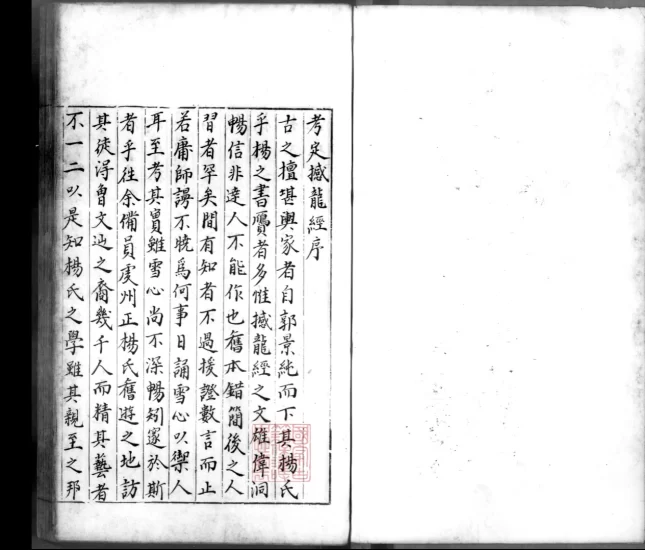 考定撼龍經序
古之擅堪輿家者自郭景純而下其楊氏
乎楊之書贗者多惟撼龍經之文雄偉洞
暢信非達人不能作也舊本錯簡後之人
習者罕矣間有知者不過援證數言而止
若庸師謭不曉爲何事日誦雪心以禦人
耳至考其實雖雪心尚不深暢矧邃於斯
者乎徃余備員虔州正楊氏舊遊之地訪
其徒得曾文辿之裔幾千人而精其藝者
不一二以是知楊氏之學雖其親至之邦